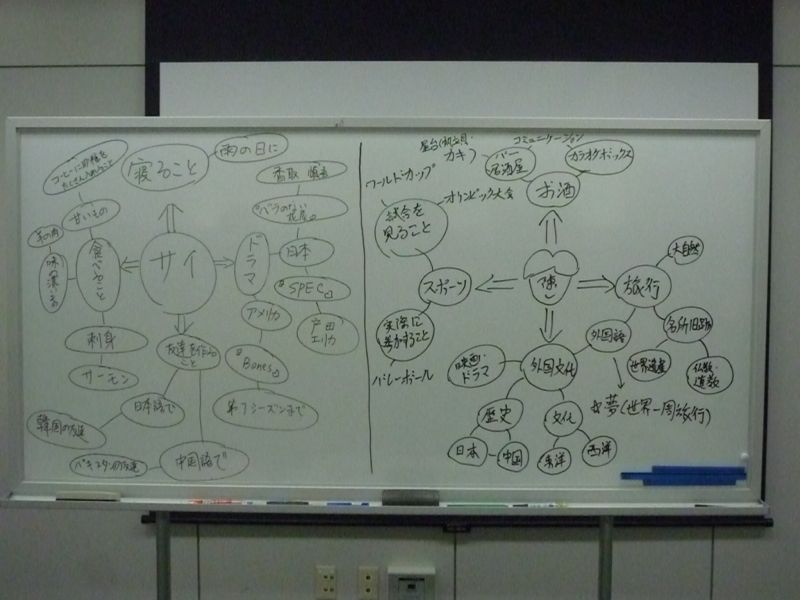 雨の日に
寝ること
コーヒーに砂糖を
たくさん入れること
甘いもの
羊の肉
味の濃いもの
食べること
刺身
サーモン
サイ
友達を作る
こと
日本語で
韓国の友達
中国語で
パキスタンの友達
ドラマ
香取 慎吾
"ベラのない
花屋"
日本
"SPEC"
戸田
エリカ
アメリカ
"Bones"
第7シーズンまで
コミュニケーション
カキ
バー
居酒屋
カラオケボックス
お酒
ワールドカップ
オリンピック大会
試合を
見ること
スポーツ
実際に
参加すること
バレーボール
陳
旅行
大自然
名所旧跡
仏教・
道教
世界遺産
外国語
☆夢(世界一周旅行)
外国文化
映画・
ドラマ
歴史
日本
中国
文化
東洋
西洋